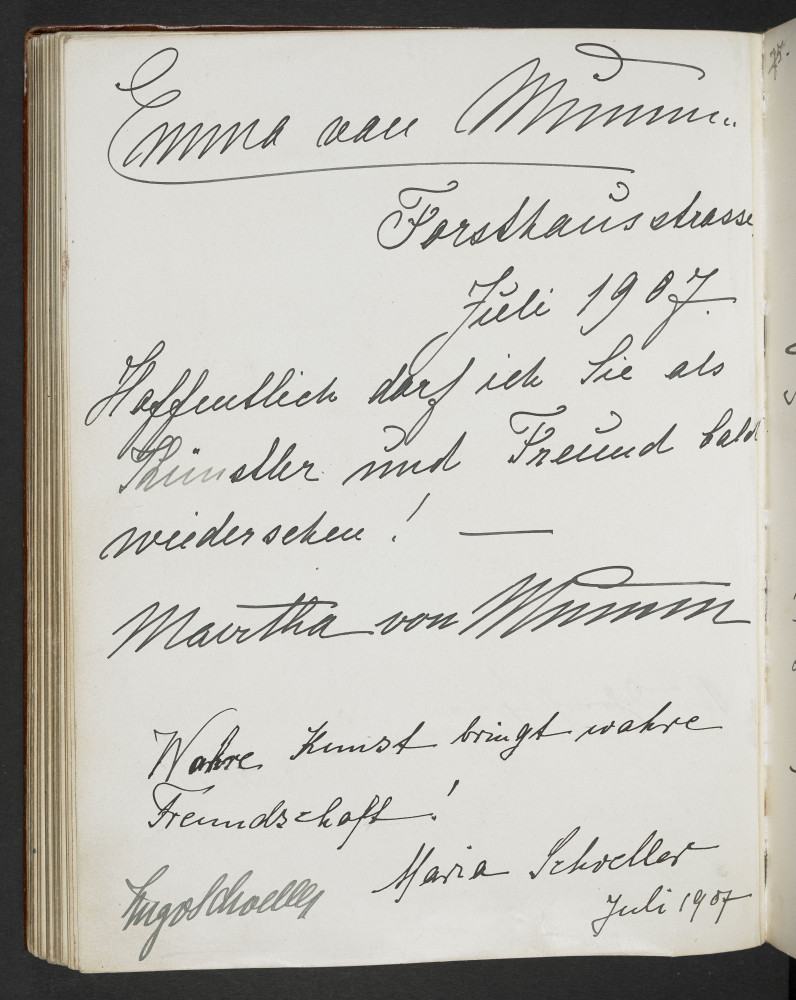 Emma von Mumm.
Forsthausstrasse
Juli 1907.
Hoffentlich darf ich Sie als
Künstler und Freund bald
wiedersehen! —
Martha von Mumm
Wahre Kunst bringt wahre
Freundschaft!
Maria Schoeller
Hugo Schoeller
Juli 1907
75.